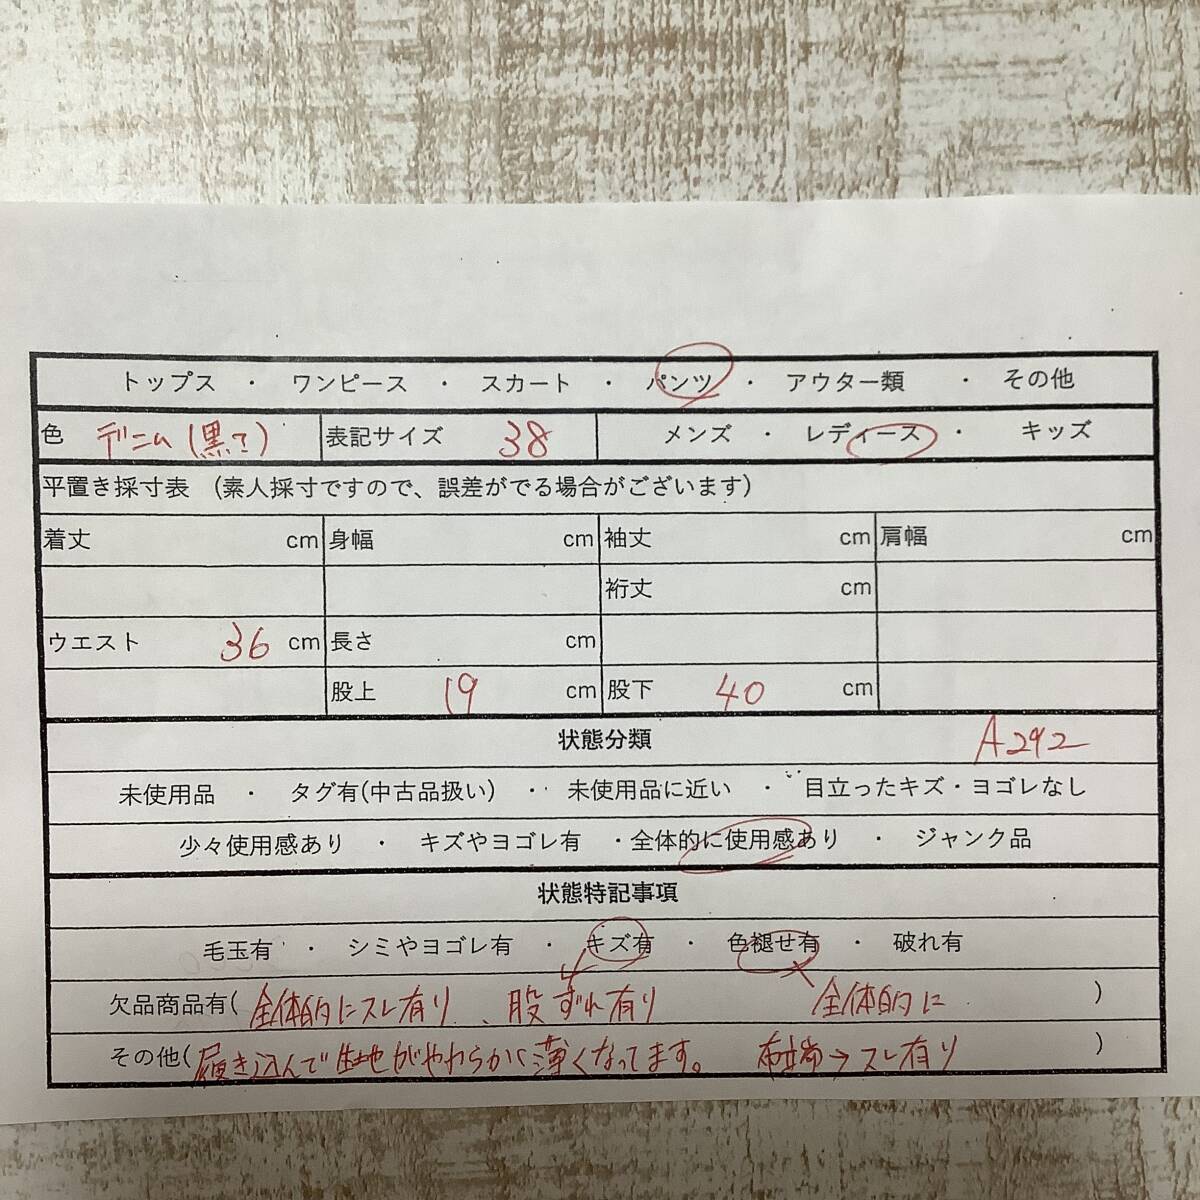 トップス ・ ワンピース ・ スカート ・ パンツ ・ アウター類 ・ その他
色 デニム(黒?) 表記サイズ 38 メンズ ・ レディース ・ キッズ
平置き採寸表 (素人採寸ですので、誤差がでる場合がございます)
着丈 cm 身幅 cm 袖丈 cm 肩幅 cm
裄丈 cm
ウエスト 36 cm 長さ cm
股上 19 cm 股下 40 cm
状態分類 A292
未使用品 ・ タグ有(中古品扱い) ・ 未使用品に近い ・ 目立ったキズ・ヨゴレなし
少々使用感あり ・ キズやヨゴレ有 ・全体的に使用感あり ・ ジャンク品
状態特記事項
毛玉有 ・ シミやヨゴレ有 ・ キズ有 ・ 色褪せ有 ・ 破れ有
欠品商品有( 全体的にスレ有り、股ずれ有り 全体的に )
その他( 履き込んで生地がやわらかく薄くなってます。 →スレ有り )